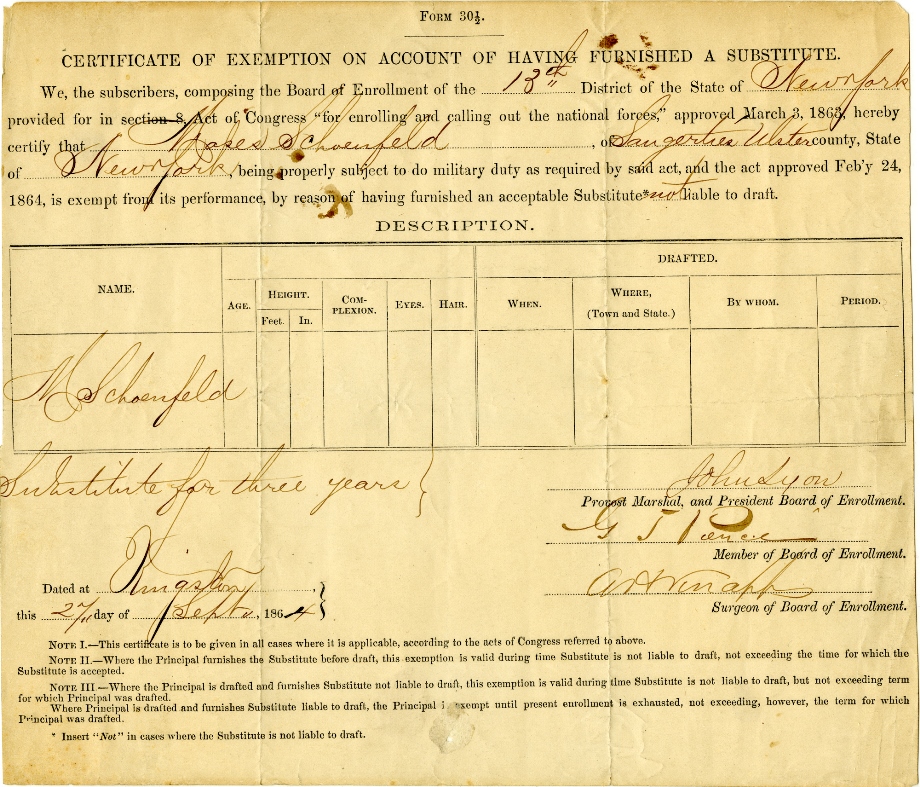 FORM 30½.
CERTIFICATE OF EXEMPTION ON ACCOUNT OF HAVING FURNISHED A SUBSTITUTE.
We, the subscribers, composing the Board of Enrollment of the 13th District of the State of New York
provided for in section 8, Act of Congress "for enrolling and calling out the national forces," approved March 3, 1863, hereby
certify that Moses Schoenfeld, of Saugerties Ulster county, State
of New York, being properly subject to do military duty as required by said act, and the act approved Feb'y 24,
1864, is exempt from its performance, by reason of having furnished an acceptable Substitute *not liable to draft.
DESCRIPTION.
DRAFTED.
NAME. AGE. HEIGHT. COM-PLEXION. EYES. HAIR. WHEN. WHERE, BY WHOM. PERIOD.
Feet. In. (Town and State.)
M Schoenfeld
Substitute for three years }
John Lyon
Provost Marshal, and President Board of Enrollment.
G T Pierce
Member of Board of Enrollment.
Dated at Kingston
Knapp
this 27 day of Sept., 1864 }
Surgeon of Board of Enrollment.
NOTE I.—This certificate is to be given in all cases where it is applicable, according to the acts of Congress referred to above.
NOTE II.—Where the Principal furnishes the Substitute before draft, this exemption is valid during time Substitute is not liable to draft, not exceeding the time for which the
Substitute is accepted.
NOTE III.—Where the Principal is drafted and furnishes Substitute not liable to draft, this exemption is valid during time Substitute is not liable to draft, but not exceeding term
for which Principal was drafted.
Where Principal is drafted and furnishes Substitute liable to draft, the Principal is exempt until present enrollment is exhausted, not exceeding, however, the term for which
Principal was drafted.
* Insert "Not" in cases where the Substitute is not liable to draft.